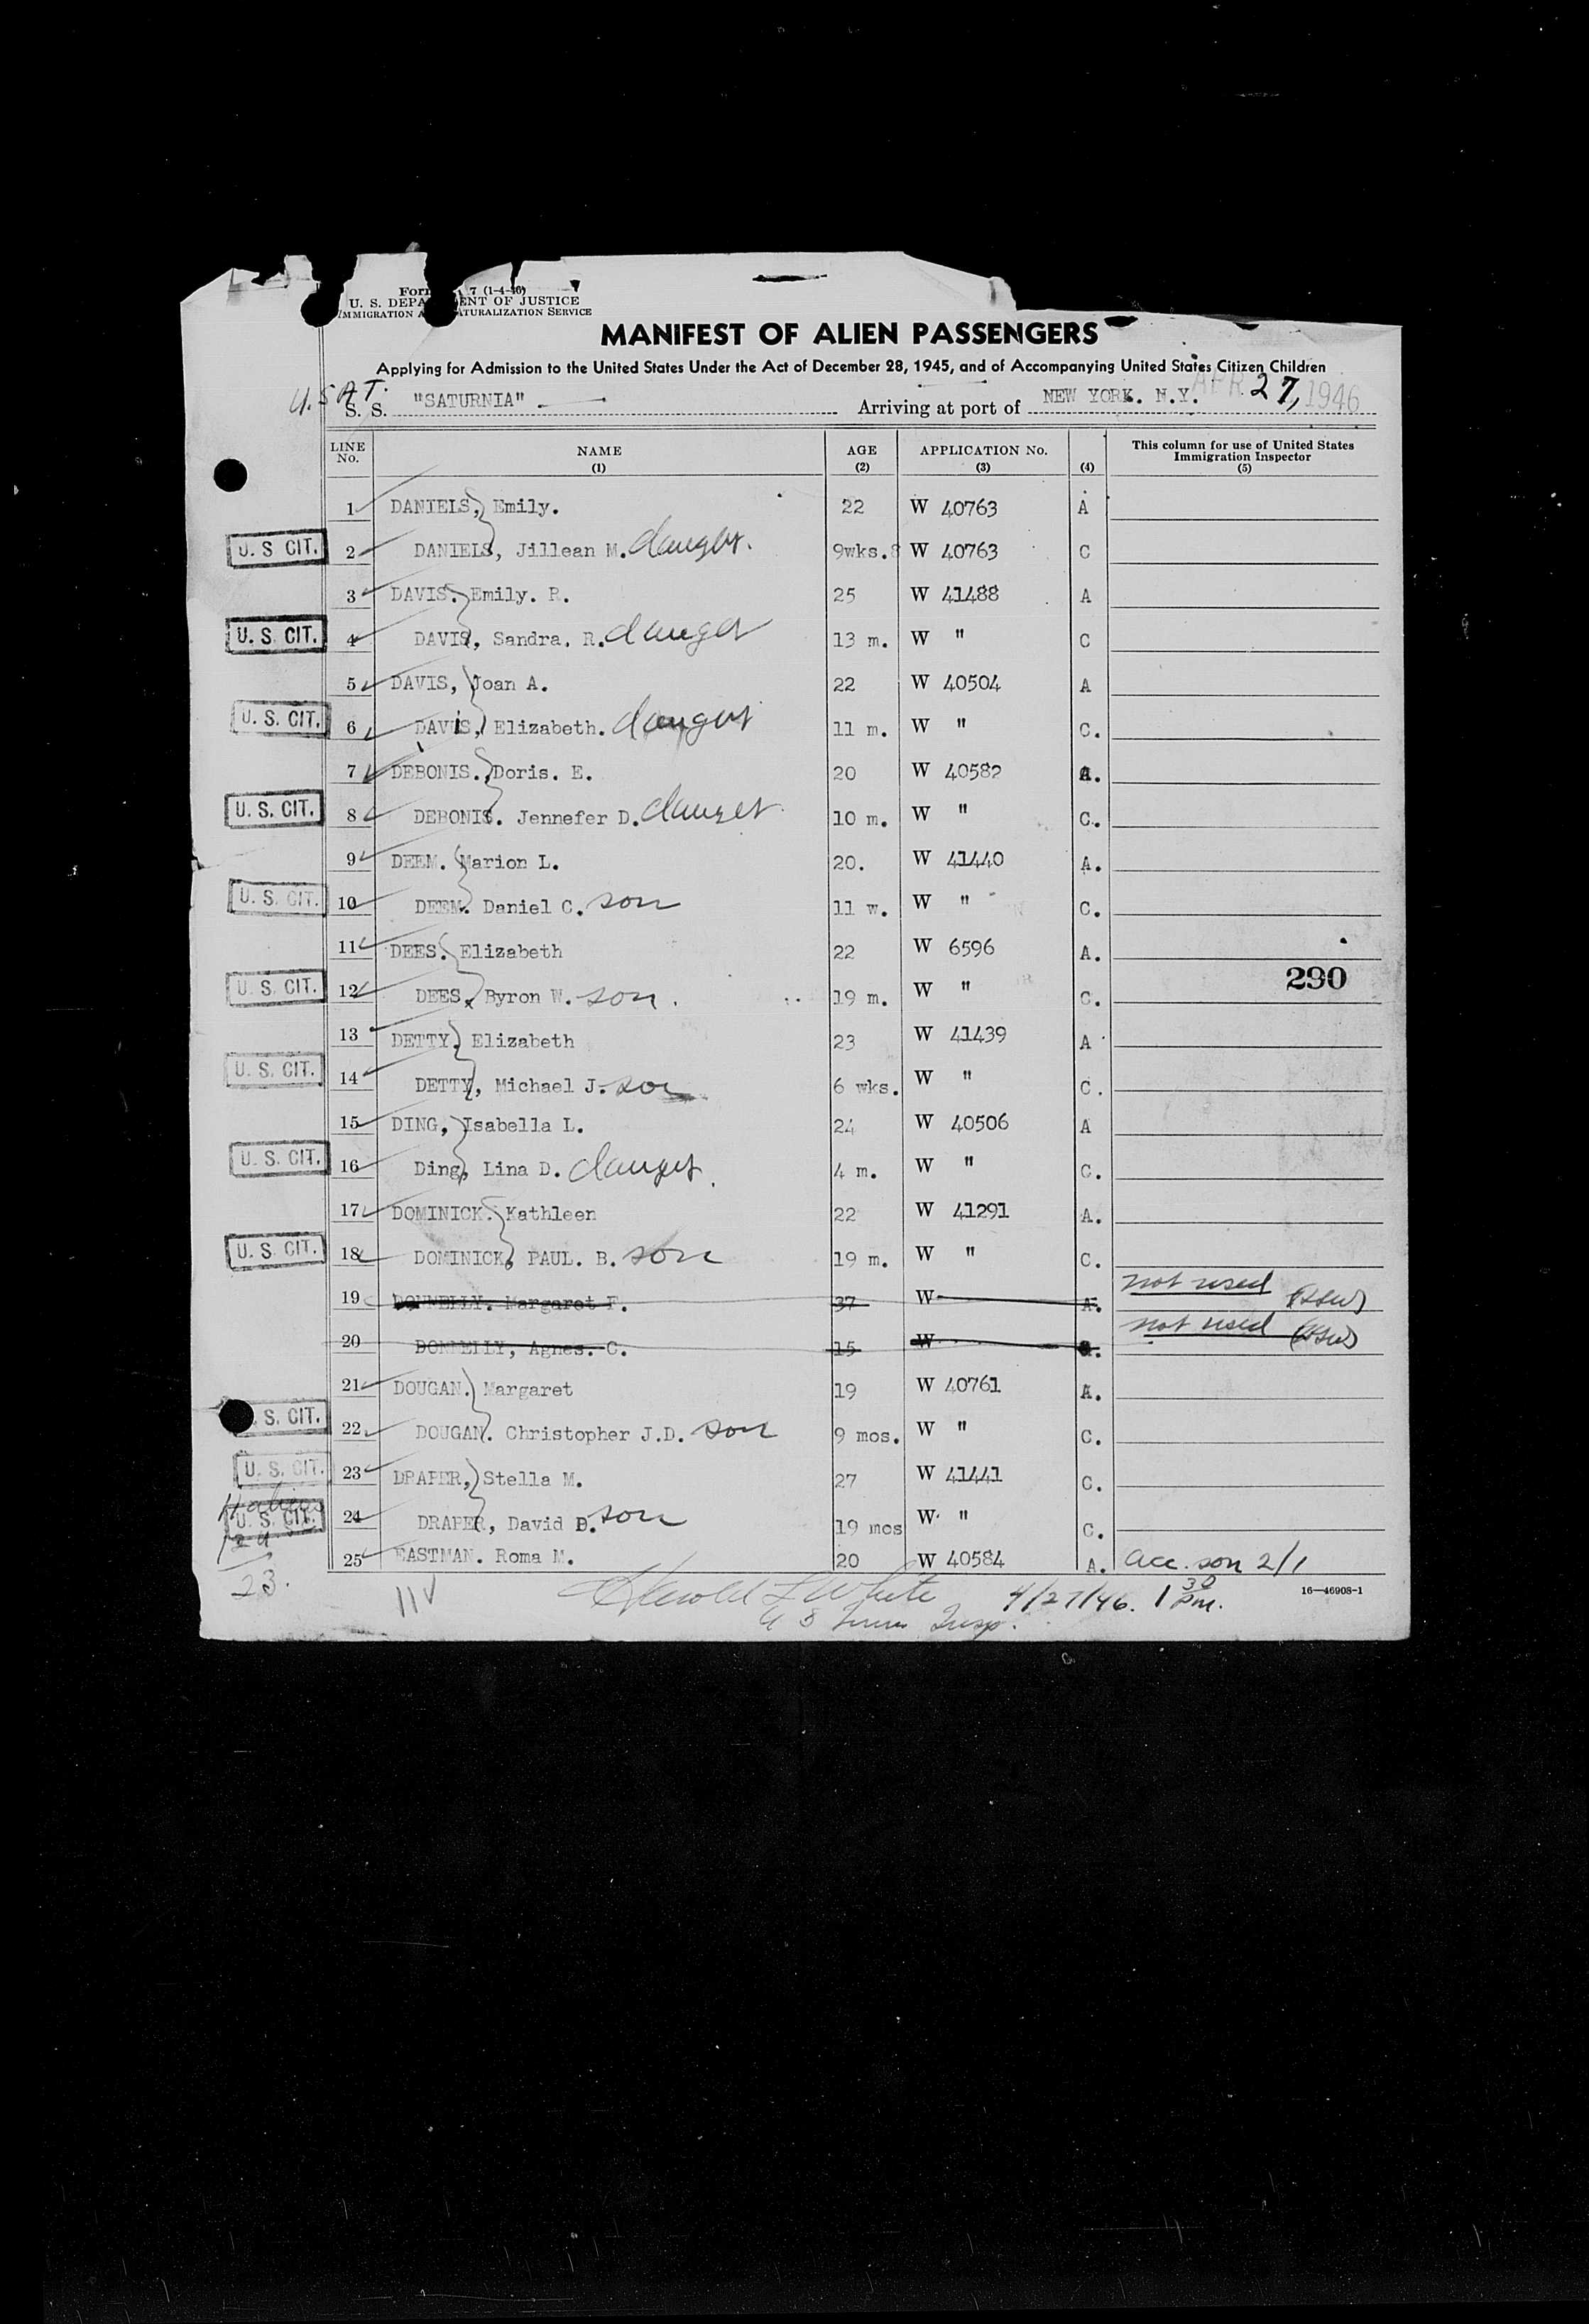 7 (1-4-46)
U. S. DEPA ENT OF JUSTICE
IMMIGRATION A ATURALIZATION SERVICE
MANIFEST OF ALIEN PASSENGERS
Applying for Admission to the United States Under the Act of December 28, 1945, and of Accompanying United States Citizen Children
U.S.A.T.
S. S. "SATURNIA" Arriving at port of NEW YORK. N.Y. APR 27, 1946
LINE No. NAME (1) AGE (2) APPLICATION No. (3) (4) This column for use of United States Immigration Inspector (5)
1 DANIELS, Emily. 22 W 40763 A
U. S. CIT. 2 DANIELS, Jillean M. daughter. 9wks. W 40763 C
3 DAVIS. Emily. R. 25 W 41488 A
U. S. CIT. 4 DAVIS, Sandra. R. daughter 13 m. W " C
5 DAVIS, Joan A. 22 W 40504 A
U. S. CIT. 6 DAVIS, Elizabeth. daughter 11 m. W " C.
7 DEBONIS. Doris. E. 20 W 40582 A.
U. S. CIT. 8 DEBONIS. Jennefer D. daughter 10 m. W " C.
9 DEEM. Marion L. 20. W 41440 A.
U. S. CIT. 10 DEEM. Daniel C. son 11 w. W " C.
11 DEES. Elizabeth 22 W 6596 A.
290
U. S. CIT. 12 DEES. Byron W. son. 19 m. W " C.
13 DETTY. Elizabeth 23 W 41439 A
U. S. CIT. 14 DETTY, Michael J. son 6 wks. W " C.
15 DING, Isabella L. 24 W 40506 A
U. S. CIT. 16 Ding, Lina D. daughter. 4 m. W " C.
17 DOMINICK. Kathleen 22 W 41291 A.
U. S. CIT. 18 DOMINICK, PAUL. B. son 19 m. W " C.
19 DONNELLY. Margaret F. 37 W A. not used (HLW)
20 DONNELLY, Agnes. C. 15 W not used (HLW)
21 DOUGAN. Margaret 19 W 40761 A.
S. CIT. 22 DOUGAN. Christopher J.D. son 9 mos. W " C.
U. S. CIT. 23 DRAPER, Stella M. 27 W 41441 C.
U. S. CIT. 24 DRAPER, David B. son 19 mos W " C.
25 EASTMAN. Roma M. 20 W 40584 A. acc. son 2/1
23.
11
Harold L White 4/27/46. 1 30 pm. 16—46908-1
U S Imm Insp.